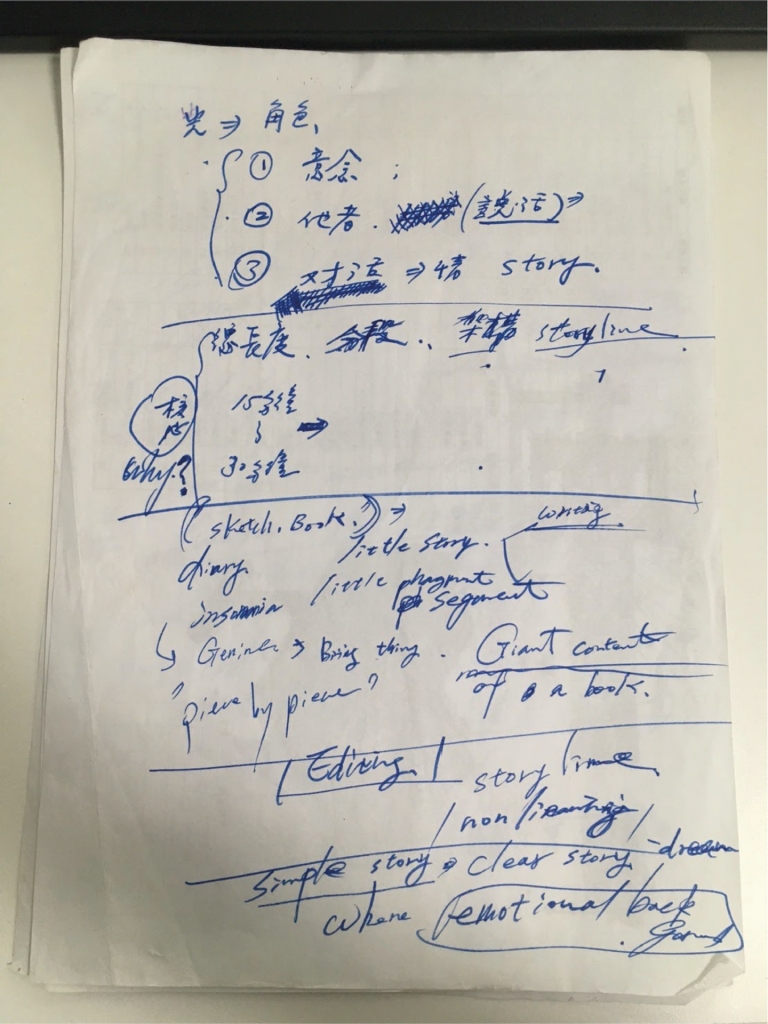 ⇒ 角色、
① 意念；
② 他者. (說話)⇒
③ 对话 ⇒ story.
總長度、分段、架構 storyline
核心 15分鐘
⇒
Why? 30分鐘
(sketch. Book.") ⇒ writing.
diary. little story.
insomnia little phragment
segment
↳ thing. Giant content
"pieve by pieve" of a book.
Editing.
story line
non
simple story ⇒ clear story. -dream
where emotional back
ground